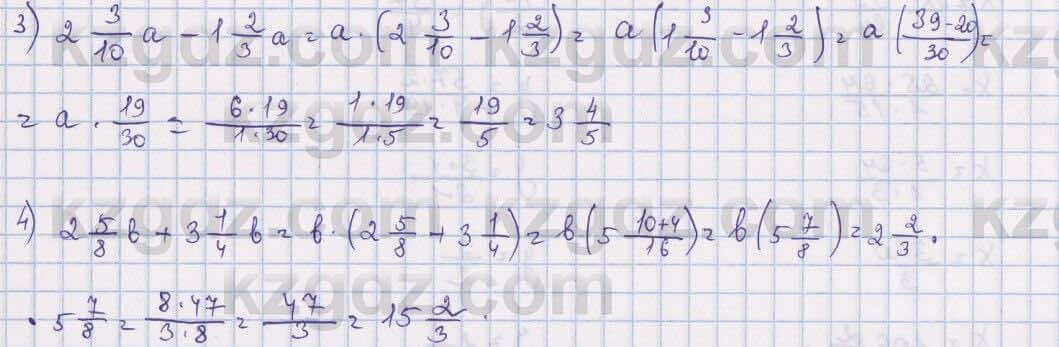 3) 2 3/10 a - 1 2/3 a = a · (2 3/10 - 1 2/3) = a (1 3/10 - 1 2/3) = a (39-20/30) =
= a · 19/30 = 6·19/1·30 = 1·19/1·5 = 19/5 = 3 4/5
4) 2 5/8 b + 3 1/4 b = b · (2 5/8 + 3 1/4) = b (5 10+4/16) = b (5 7/8) = 2 2/3 ·
· 5 7/8 = 8·47/3·8 = 47/3 = 15 2/3 .
kzgdz.com